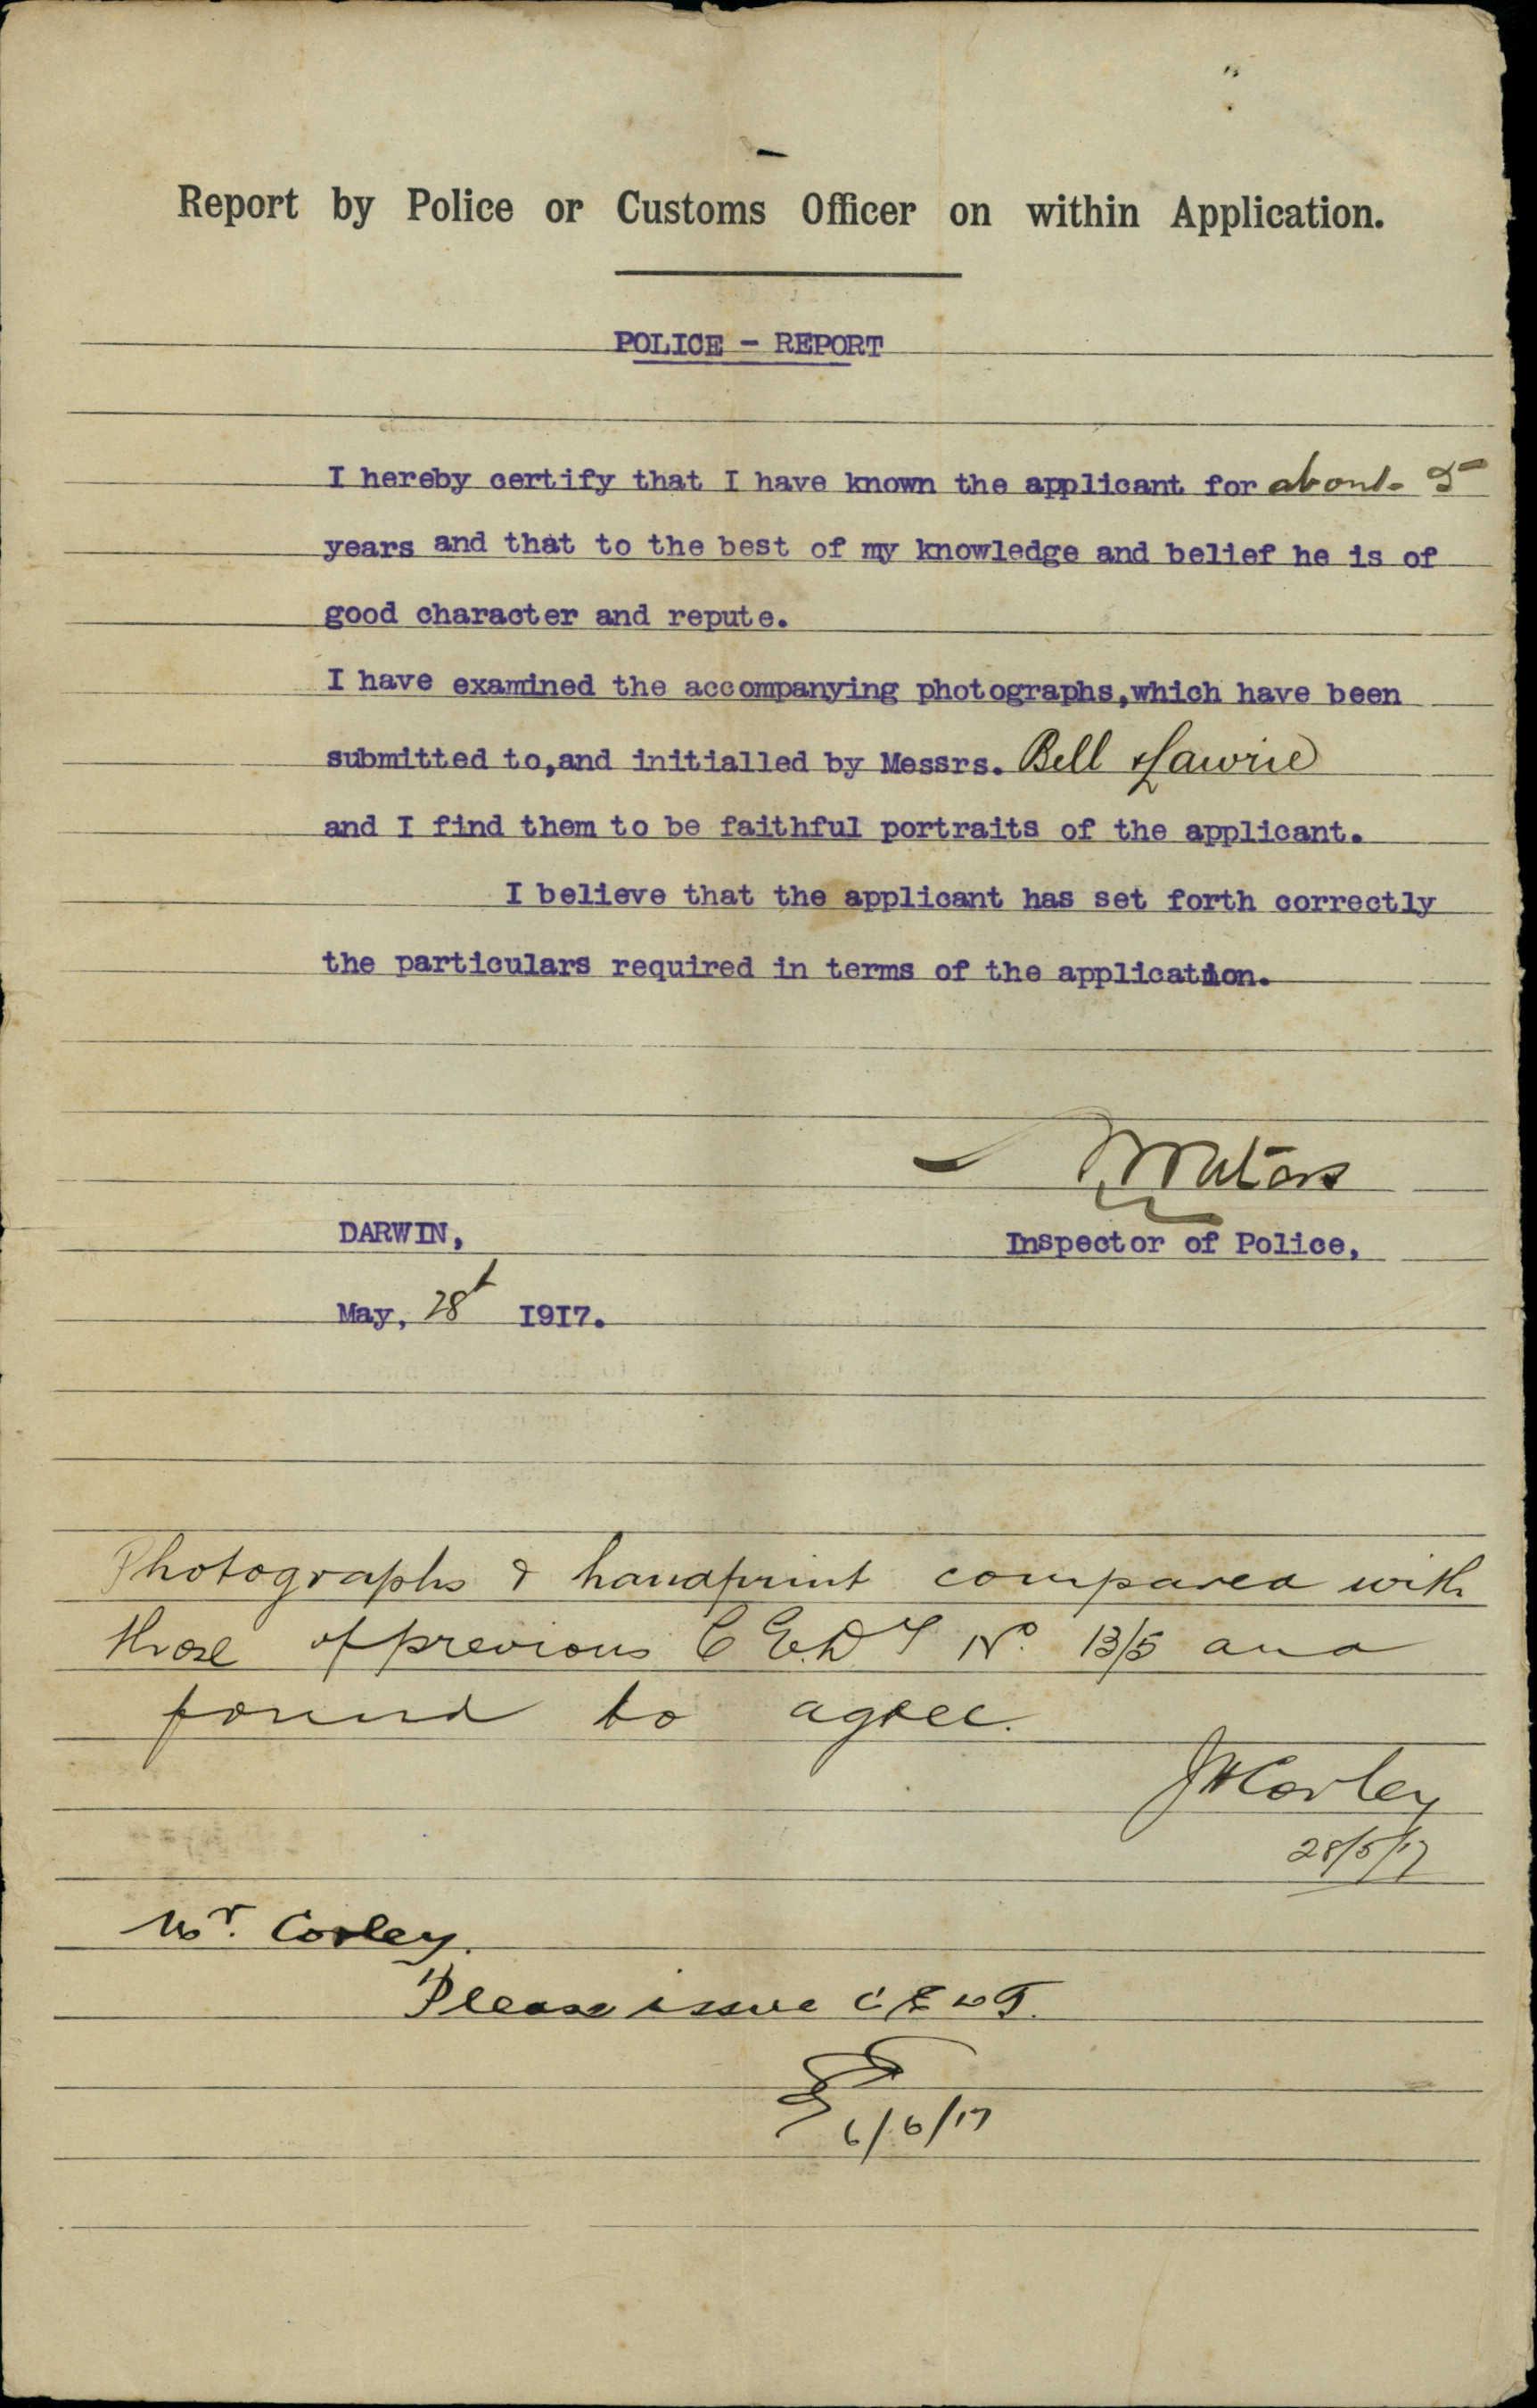 Report by Police or Customs Officer on within Application.
POLICE - REPORT
I hereby certify that I have known the applicant for about 5
years and that to the best of my knowledge and belief he is of
good character and repute.
I have examined the accompanying photographs,which have been
submitted to,and initialled by Messrs. Bell & Lawrie
and I find them to be faithful portraits of the applicant.
I believe that the applicant has set forth correctly
the particulars required in terms of the application.
Waters
DARWIN,
Inspector of Police,
May, 28t 1917.
Photographs & handprint compared with
those of previous C.E.D.T No. 13/5 and
found to agree.
JHCorley
28/5/17
Mr. Corley.
Please issue CEDT.
6/6/17